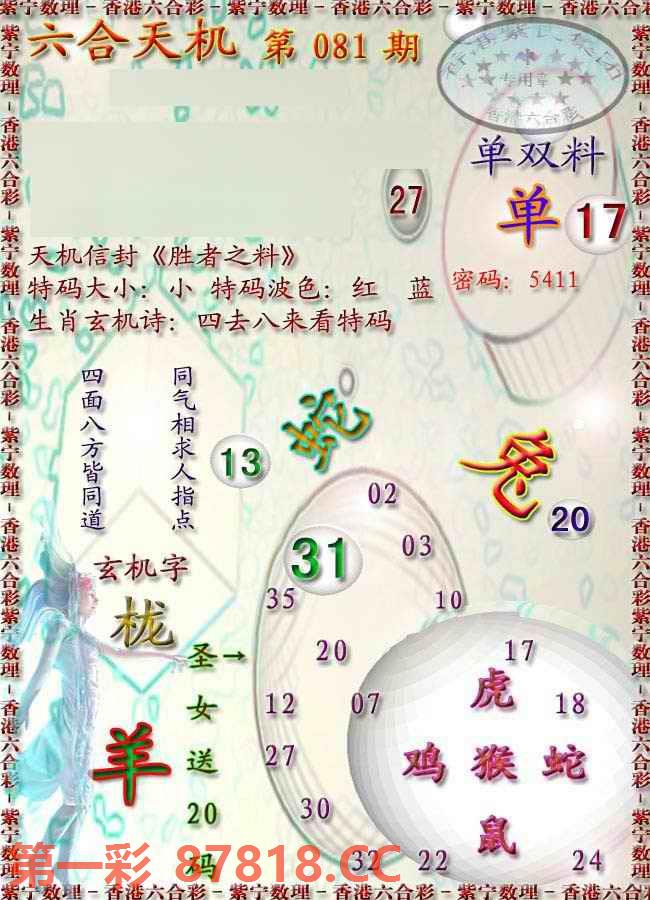 紫宁数理－香港六合彩－紫宁数理－香港六合彩－紫宁数理－香港六合彩
六合天机 第 081 期
专用章
香港六合彩
单双料
单
17
27
天机信封《胜者之料》
特码大小：小 特码波色：红 蓝
密码：5411
生肖玄机诗：四去八来看特码
同气相求人指点
四面八方皆同道
13
蛇
兔
20
31
02
03
35
10
玄机字
栊
圣女送20码
→
20
17
12
07
18
27
30
32
22
24
虎
鸡 猴 蛇
鼠
羊
第一彩 87818.CC
紫宁数理－香港六合彩－紫宁数理－香港六合彩－紫宁数理－香港六合彩